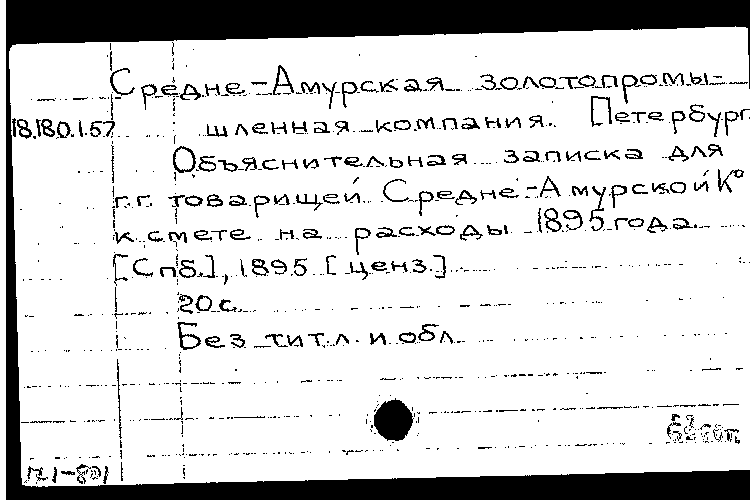 Средне-Амурская золотопромы-
18.180.1.57 шленная компания. Петербург.
Объяснительная записка для
г.г. товарищей Средне-Амурской Ко
к смете на расходы 1895 года.
[Спб.], 1895 [ценз.]
20 с.
Без тит. л. и обл.